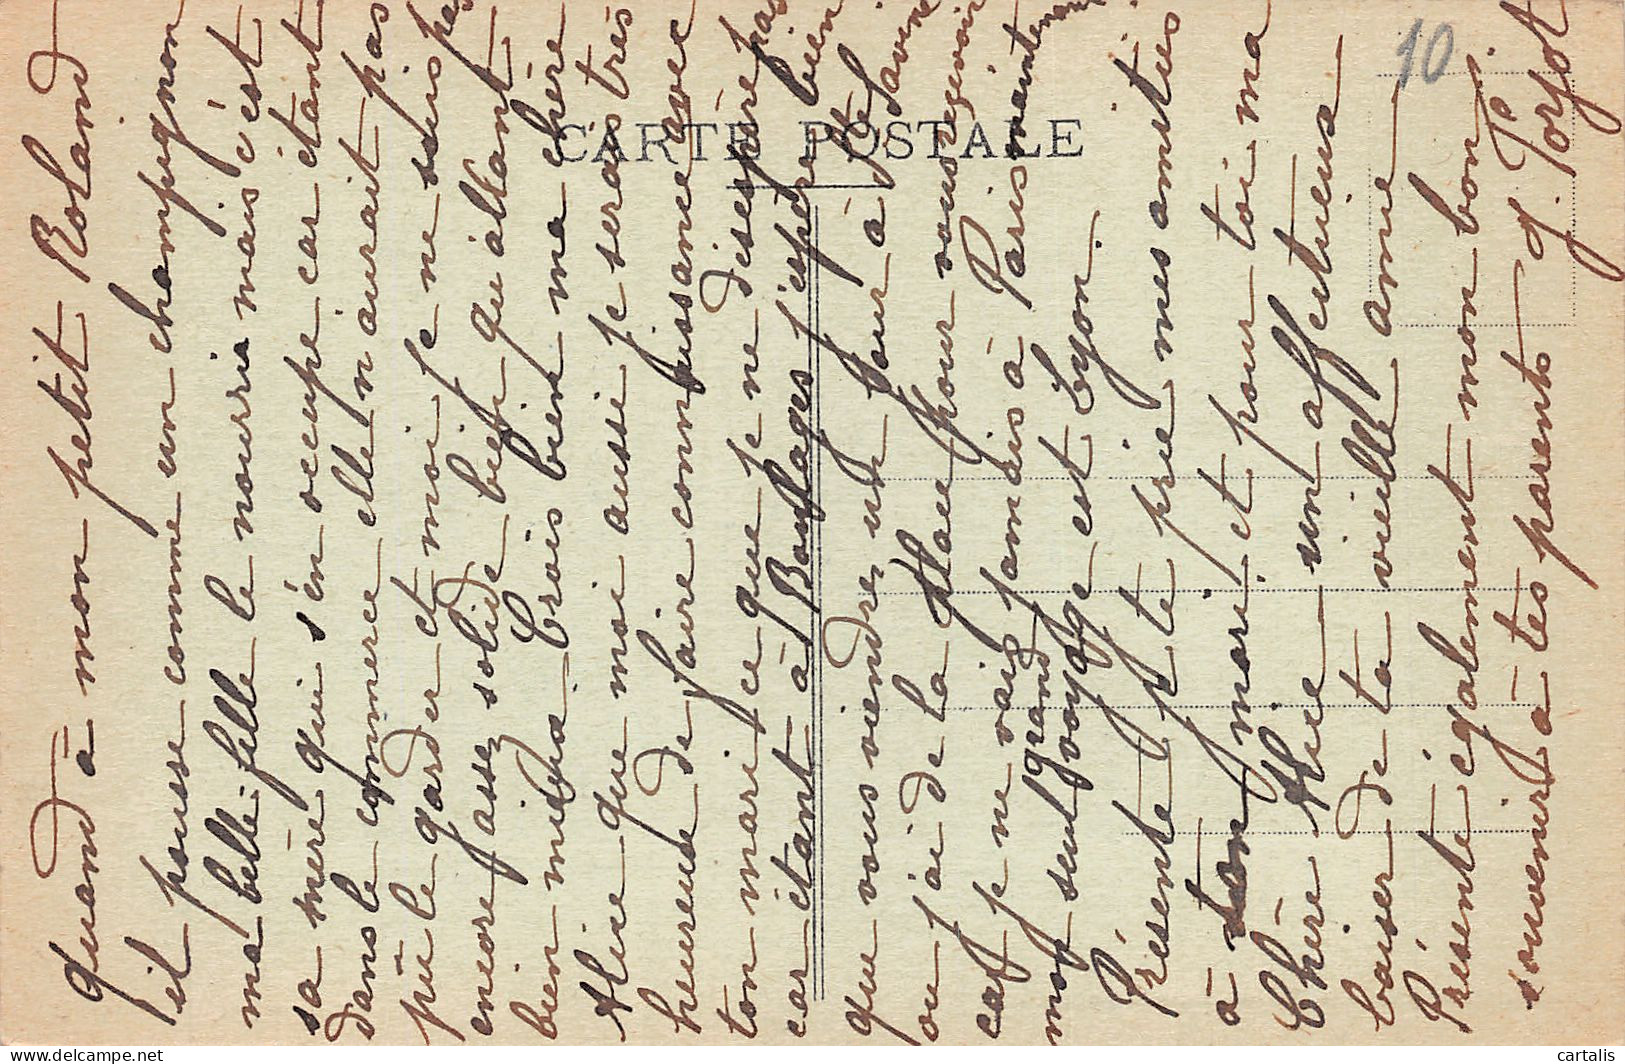 Quand à mon petit Roland
il pousse comme un champignon
ma belle-fille le nourris mais c'est
sa mère qui s'en occupe car étant
dans le commerce elle n'aurait pas
pû le garder et moi je ne suis pas
encore assez solide bien qu'allant
bien mieux. Crois bien ma chère
Alice que moi aussi je serais très
heureuse de faire connaissance avec
ton mari ce que je ne désespère pas
car étant à j'espère bien
que vous viendrez un jour à Ste Savine
ou j'ai de la place pour vous recevoir
car je ne vais jamais à Paris maintenant
mon seul grand voyage est Lyon.
Présente je te prie mes amitiés
à ton mari et pour toi ma
Chère Alice un affectueux
baiser de ta vieille amie
Présente également mon bon
souvenir à tes parents J. Porjot
CARTE POSTALE
10
cartalis